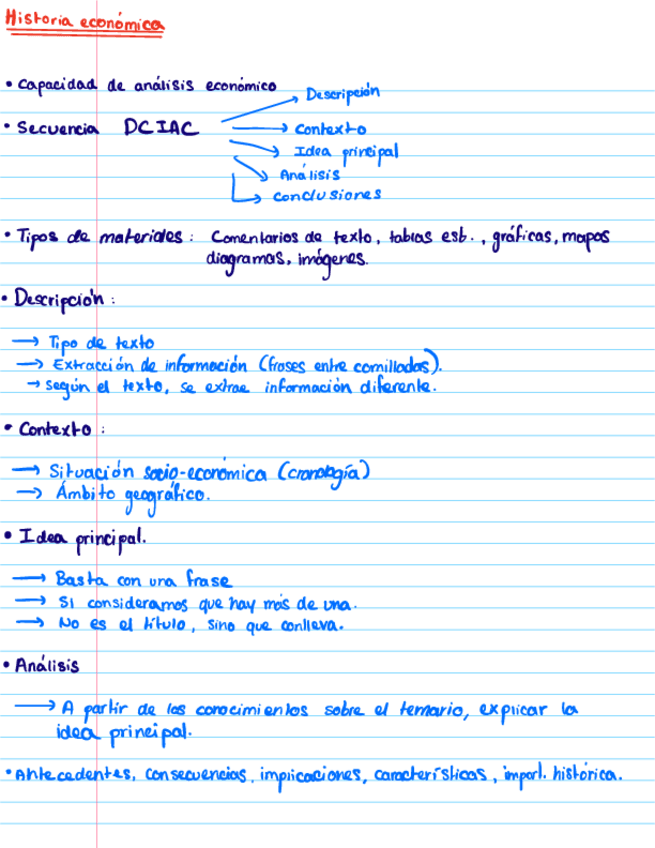 Historia económica
• Capacidad de análisis económico
• Secuencia DCIAC
→ Descripción
→ Contexto
→ Idea principal
→ Análisis
→ Conclusiones
• Tipos de materiales: Comentarios de texto, tablas est., gráficas, mapas
diagramas, imágenes.
• Descripción:
→ Tipo de texto
→ Extracción de información (frases entre comilladas).
→ Según el texto, se extrae información diferente.
• Contexto:
→ Situación socio-económica (cronología)
→ Ámbito geográfico.
• Idea principal.
→ Basta con una frase
→ Si consideramos que hay más de una.
→ No es el título, sino que conlleva.
• Análisis
→ A partir de los conocimientos sobre el temario, explicar la
idea principal.
• Antecedentes, consecuencias, implicaciones, características, import. histórica.